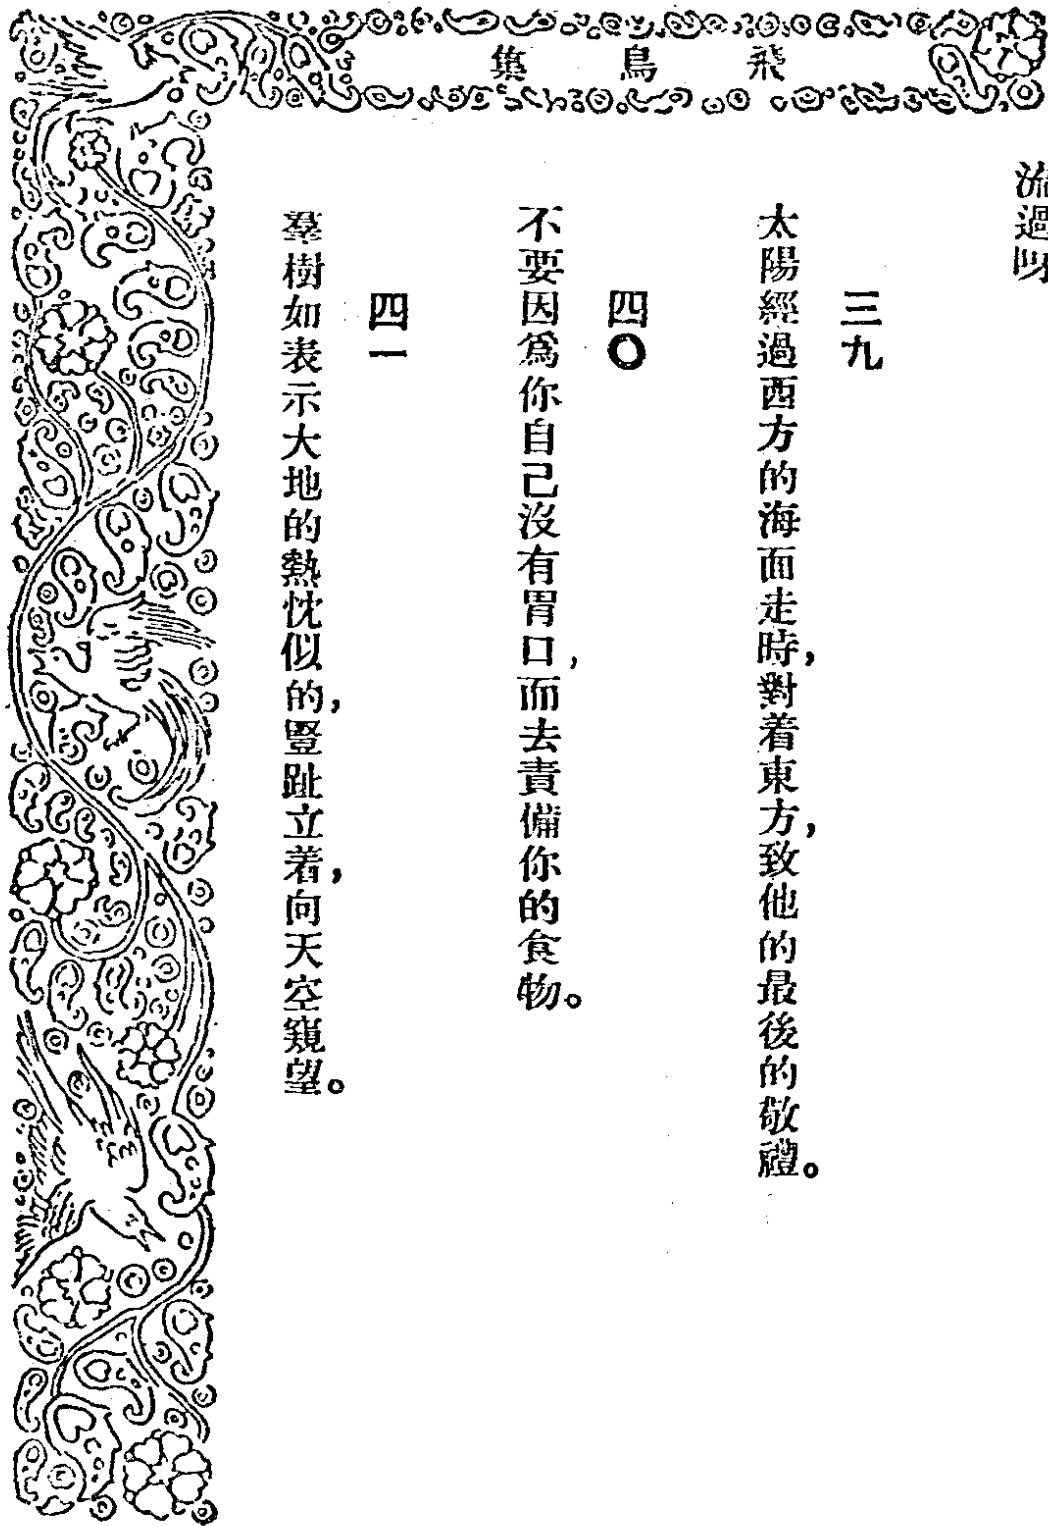 飛鳥集
流過呀
三九
太陽經過西方的海面走時，對着東方，致他的最後的敬禮。
四〇
不要因爲你自己沒有胃口，而去責備你的食物。
四一
羣樹如表示大地的熱忱似的，豎趾立着，向天空窺望。